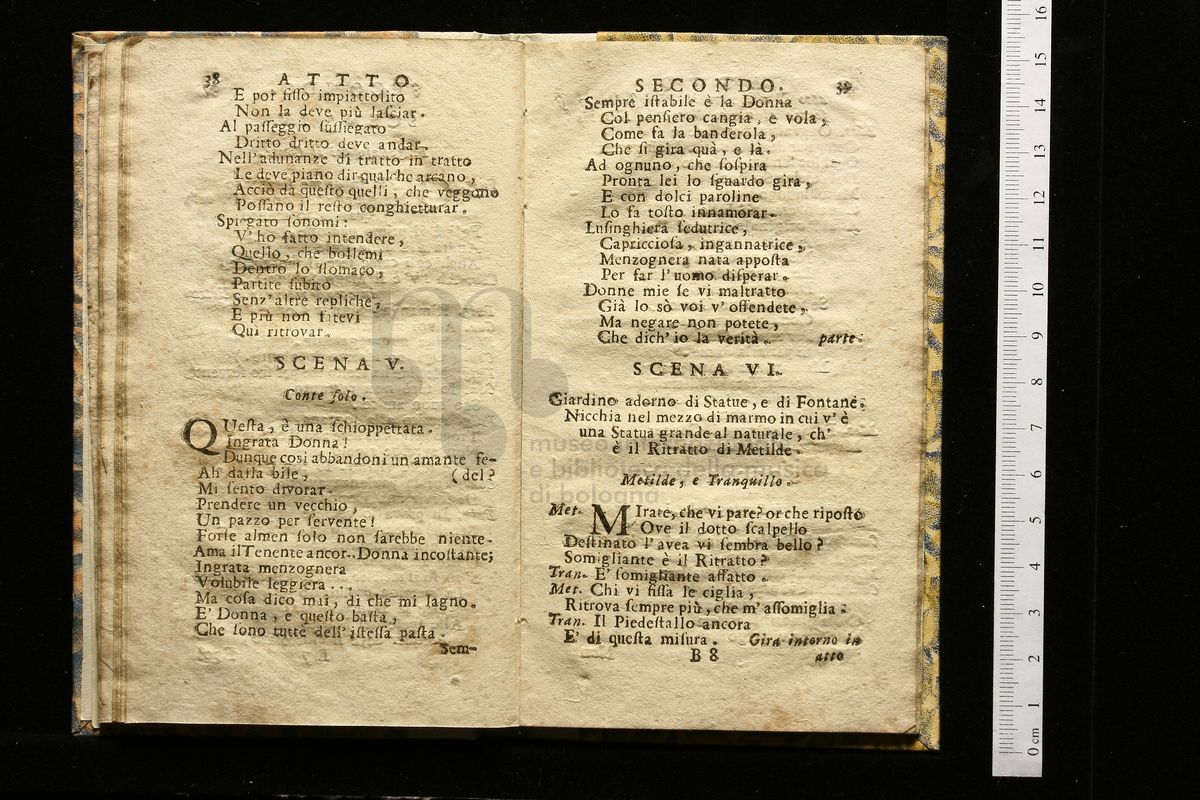 38 ATTTO
E poi fisso impiattolito
Non la deve più lasciar.
Al passeggio sussiegato
Dritto dritto deve andar.
Nell'adunanze di tratto in tratto
Le deve piano dir qualche arcano,
Acciò da questo quelli, che veggono
Possano il resto conghietturar.
Spiegato sonomi:
V'ho fatto intendere,
Quello, che bollemi
Dentro lo stomaco,
Partite subito
Senz'altre repliche,
E più non fatevi
Qui ritrovar.
SCENA V.
Conte solo.
QUesta, è una schioppettata.
Ingrata Donna!
Dunque così abbandoni un amante fe-
Ah dalla bile, (del?
Mi sento divorar.
Prendere un vecchio,
Un pazzo per servente!
Forse almen solo non sarebbe niente.
Ama il Tenente ancor. Donna incostante;
Ingrata menzognera
Volubile leggiera...
Ma cosa dico mai, di che mi lagno.
E' Donna, e questo basta,
Che sono tutte dell'istessa pasta.
Sem-
SECONDO. 39
Sempre istabile è la Donna
Col pensiero cangia, e vola,
Come fa la banderola,
Che si gira quà, e là.
Ad ognuno, che sospira
Pronta lei lo sguardo gira,
E con dolci paroline
Lo fa tosto innamorar.
Lusinghiera sedutrice,
Capricciosa, ingannatrice,
Menzognera nata apposta
Per far l'uomo disperar.
Donne mie se vi maltratto
Già lo sò voi v'offendete,
Ma negare non potete,
Che dich'io la verità. parte.
SCENA VI.
Giardino adorno di Statue, e di Fontane.
Nicchia nel mezzo di marmo in cui v'è
una Statua grande al naturale, ch'
è il Ritratto di Metilde.
Metilde, e Tranquillo.
Met. MIrate, che vi pare? or che riposto
Ove il dotto scalpello
Destinato l'avea vi sembra bello?
Somigliante è il Ritratto?
Tran. E' somigliante affatto.
Met. Chi vi fissa le ciglia,
Ritrova sempre più, che m'assomiglia.
Tran. Il Piedestallo ancora
E' di questa misura. Gira intorno in
B 8 atto
museo
e biblioteca della musica
di bologna
0 cm 1 2 3 4 5 6 7 8 9 10 11 12 13 14 15 16